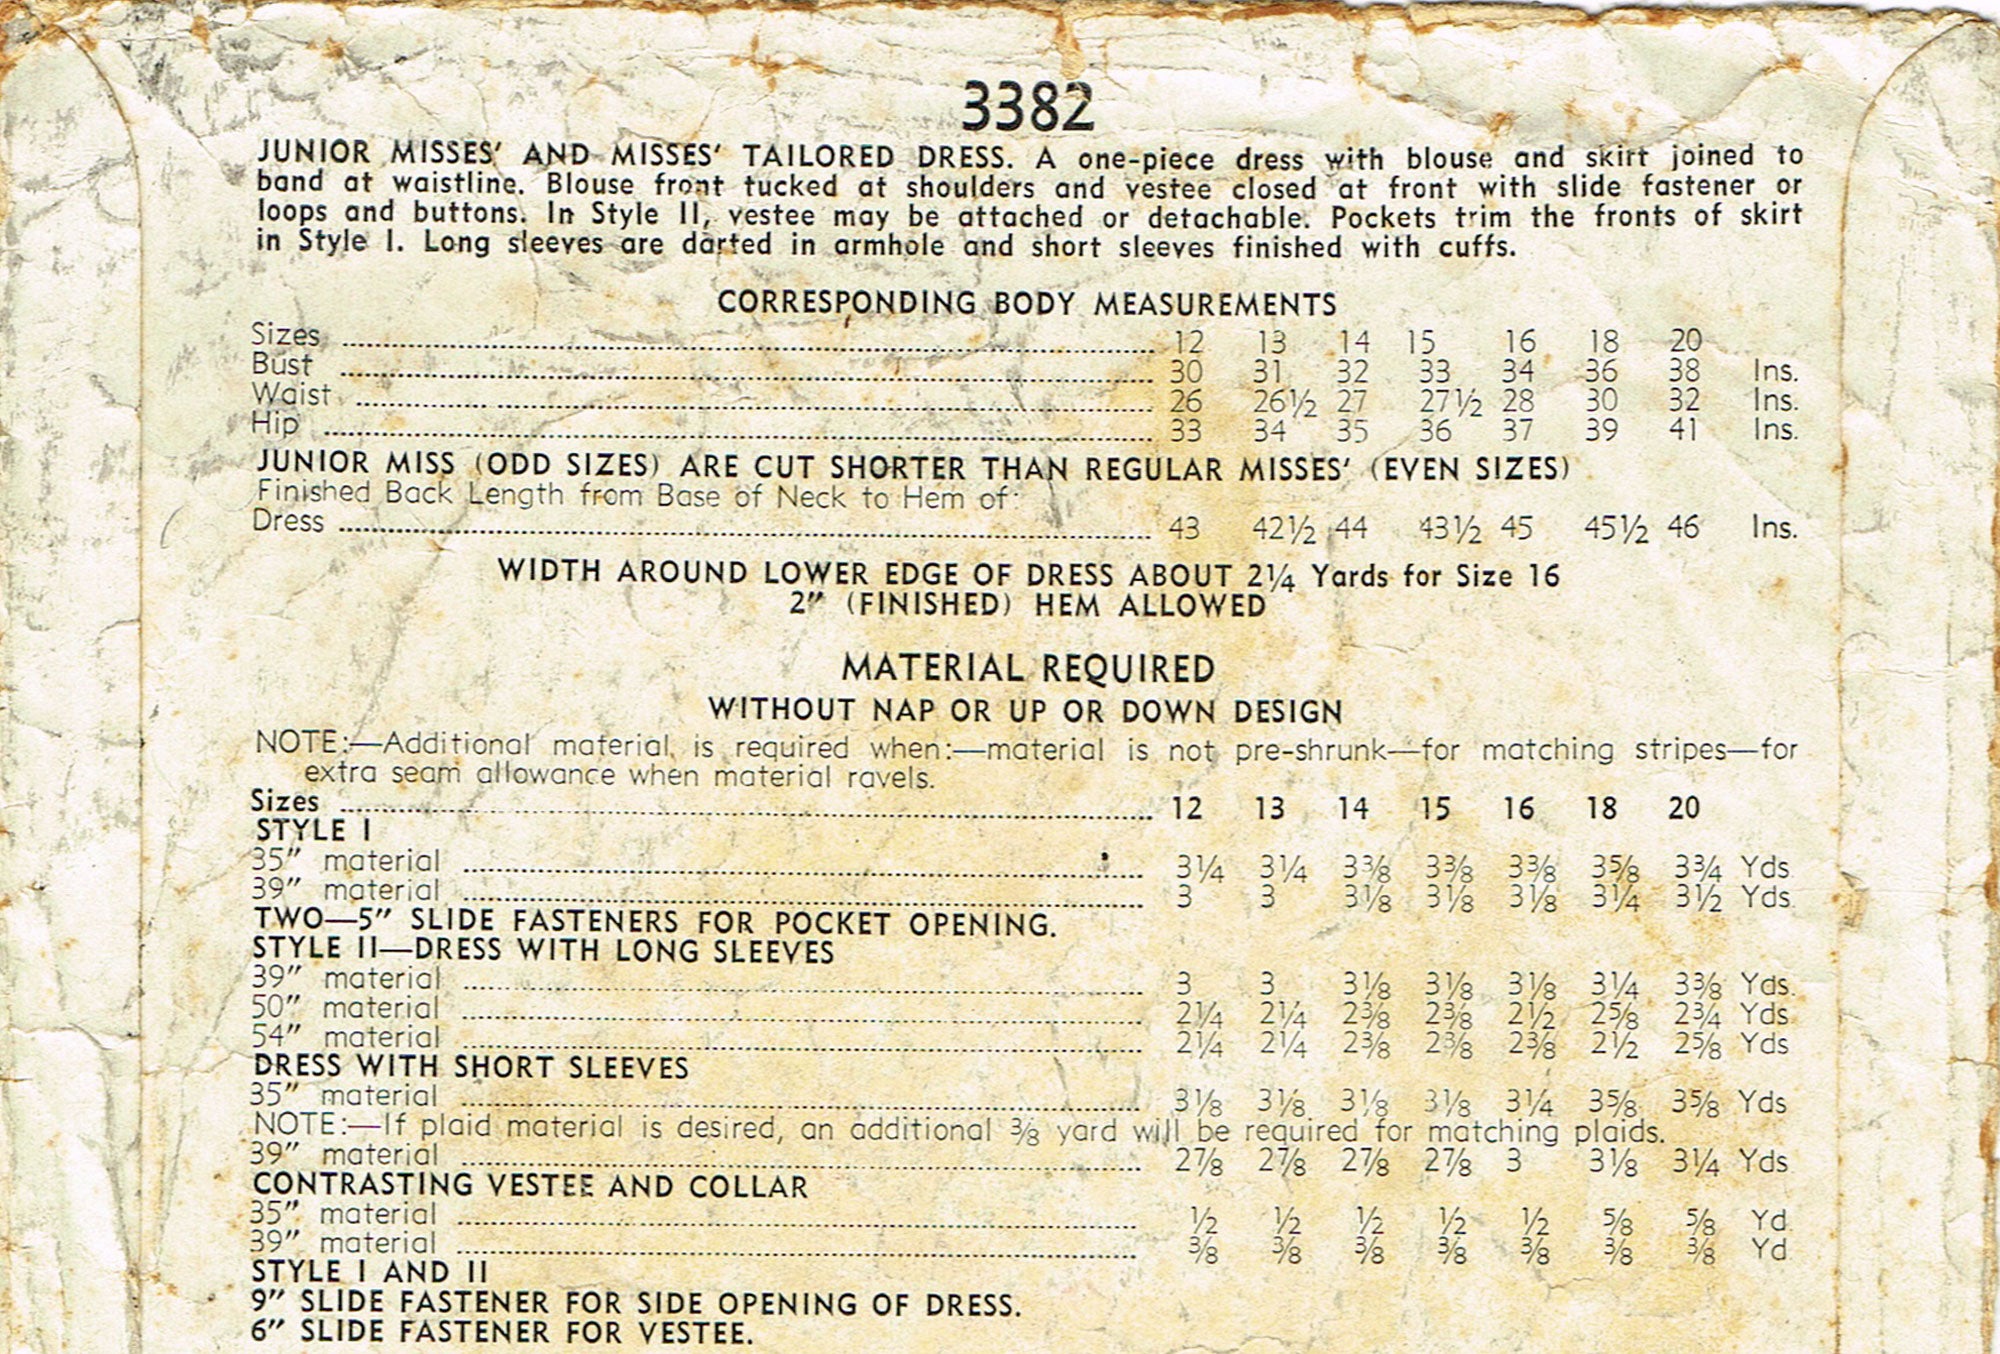 3382
JUNIOR MISSES' AND MISSES' TAILORED DRESS. A one-piece dress with blouse and skirt joined to
band at waistline. Blouse front tucked at shoulders and vestee closed at front with slide fastener or
loops and buttons. In Style II, vestee may be attached or detachable. Pockets trim the fronts of skirt
in Style I. Long sleeves are darted in armhole and short sleeves finished with cuffs.
CORRESPONDING BODY MEASUREMENTS
Sizes 12 13 14 15 16 18 20
Bust 30 31 32 33 34 36 38 Ins.
Waist 26 26½ 27 27½ 28 30 32 Ins.
Hip 33 34 35 36 37 39 41 Ins.
JUNIOR MISS (ODD SIZES) ARE CUT SHORTER THAN REGULAR MISSES' (EVEN SIZES)
Finished Back Length from Base of Neck to Hem of:
Dress 43 42½ 44 43½ 45 45½ 46 Ins.
WIDTH AROUND LOWER EDGE OF DRESS ABOUT 2¼ Yards for Size 16
2" (FINISHED) HEM ALLOWED
MATERIAL REQUIRED
WITHOUT NAP OR UP OR DOWN DESIGN
NOTE:—Additional material is required when:—material is not pre-shrunk—for matching stripes—for
extra seam allowance when material ravels.
Sizes 12 13 14 15 16 18 20
STYLE I
35" material 3¼ 3¼ 3⅜ 3⅜ 3⅜ 3⅝ 3¾ Yds.
39" material 3 3 3⅛ 3⅛ 3⅛ 3¼ 3½ Yds.
TWO—5" SLIDE FASTENERS FOR POCKET OPENING.
STYLE II—DRESS WITH LONG SLEEVES
39" material 3 3 3⅛ 3⅛ 3⅛ 3¼ 3⅜ Yds.
50" material 2¼ 2¼ 2⅜ 2⅜ 2½ 2⅝ 2¾ Yds.
54" material 2¼ 2¼ 2⅜ 2⅜ 2⅜ 2½ 2⅝ Yds
DRESS WITH SHORT SLEEVES
35" material 3⅛ 3⅛ 3⅛ 3⅛ 3¼ 3⅝ 3⅝ Yds
NOTE:—If plaid material is desired, an additional ⅜ yard will be required for matching plaids.
39" material 2⅞ 2⅞ 2⅞ 2⅞ 3 3⅛ 3¼ Yds.
CONTRASTING VESTEE AND COLLAR
35" material ½ ½ ½ ½ ½ ⅝ ⅝ Yd.
39" material ⅜ ⅜ ⅜ ⅜ ⅜ ⅜ ⅜ Yd.
STYLE I AND II
9" SLIDE FASTENER FOR SIDE OPENING OF DRESS.
6" SLIDE FASTENER FOR VESTEE.